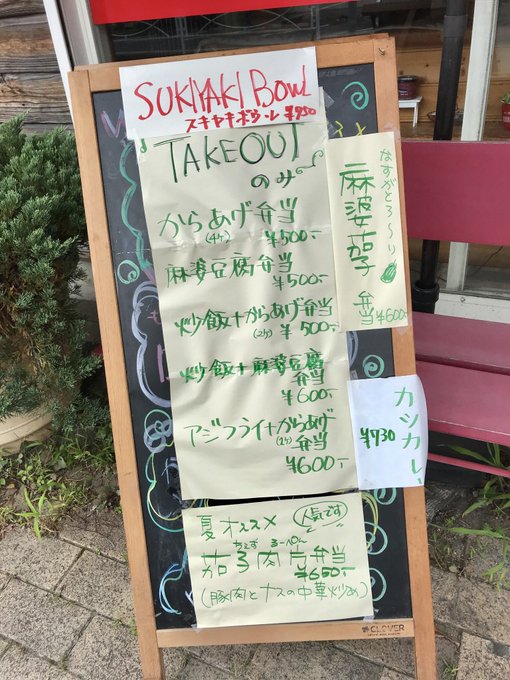 SUKIYAKI Bowl
スキヤキボウル ¥750
TAKEOUT
のみ
からあげ弁当
(4ケ) ¥500-
麻婆豆腐弁当
¥500-
炒飯+からあげ弁当
(2ケ) ¥500-
炒飯+麻婆豆腐
弁当
¥600-
アジフライ+からあげ
(2ケ) 弁当
¥600-
なすがとろ〜り
麻婆茄子
弁当 ¥600-
カツカレー
¥730
夏オススメ 人気です
ちぇず
茄子肉片弁当
¥650-
(豚肉とナスの中華炒め)
CLOVER